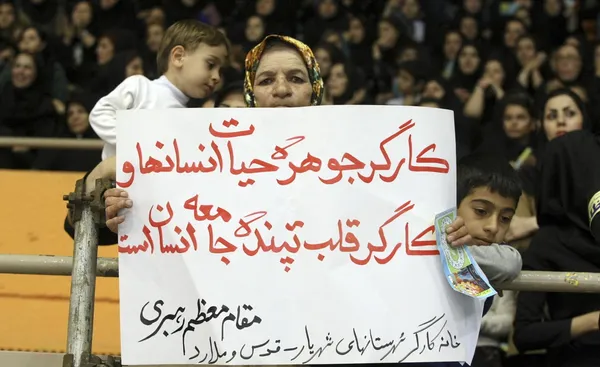 کارگر جوهره حیات انسانها و
کارگر قلب تپنده جامعه انسان است
مقام معظم رهبری
خانه کارگر شهرستانهای شهریار - قدس و ملارد